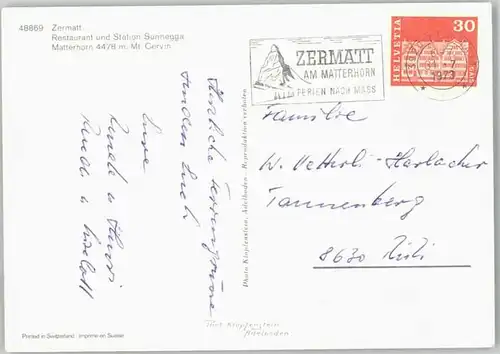 48869 Zermatt
Restaurant und Station Sunnegga
Matterhorn 4478 m. Mt. Cervin
Herzliche Feriengrüsse
senden Euch
Eure
Ruedi u
Ruedi u
Photo Klopfenstein, Adelboden - Reproduktion verboten
ZERMATT
AM MATTERHORN
FERIEN NACH MASS
HELVETIA
30
1973
Familie
W. Vetterli-Harlacher
Tannenberg
8630 Rüti
Printed in Switzerland Imprimé en Suisse
Klopfenstein
Adelboden